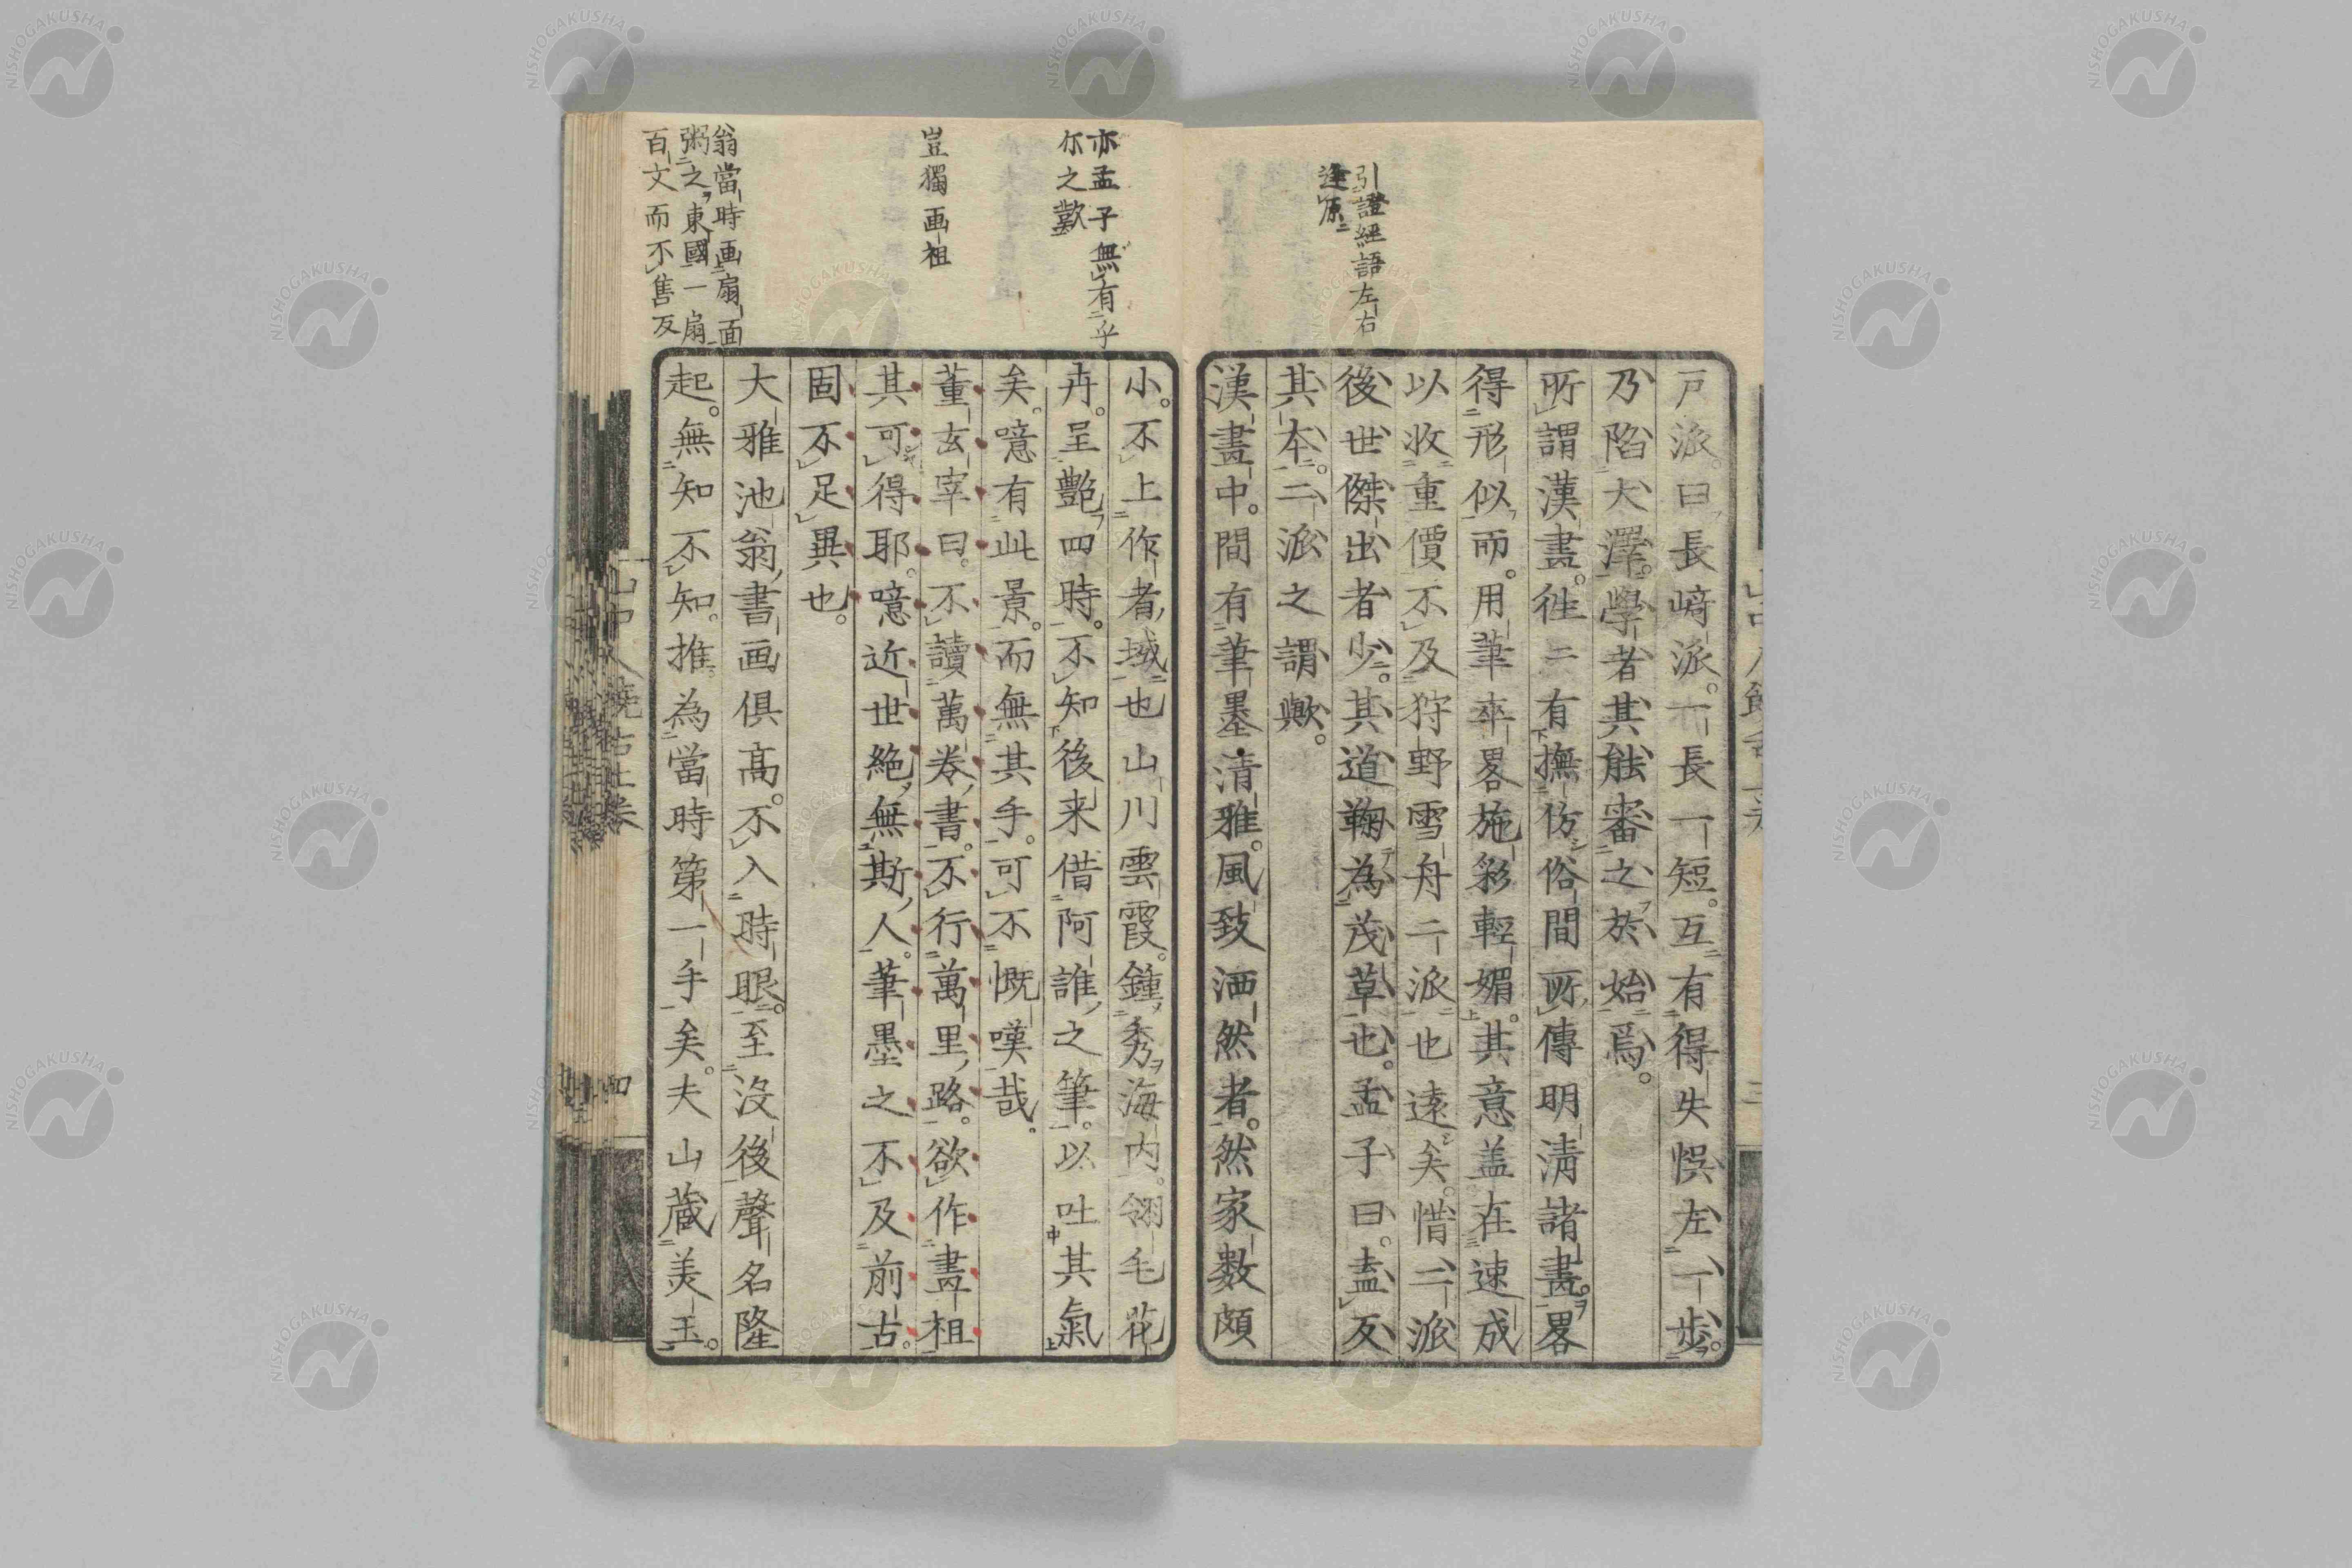 引證經語左右
逢原
戸派。曰長﨑派。一長一短。互有得失。悞左一歩。
乃陷大澤。學者其能審之於始焉。
所謂漢畫。徃〻有撫仿俗間所傳明淸諸畫。畧
得形似而。用筆卒畧施彩輕媚。其意盖在速成
以收重價不及狩野雪舟二派也遠矣。惜二派
後世傑出者少。其道鞠為茂草也。孟子曰。盍反
其本。二派之謂歟。
漢畫中。間有筆墨清雅。風致洒然者。然家數頗
亦孟子無有乎
尓之歎
豈獨画祖
翁當時画扇面
粥之東國一扇
百文而不售反
小。不上作者域也山川雲霞。鍾秀海内。翎毛花
卉。呈艶四時。不知後来借阿誰之筆。以吐其氣
矣。噫有此景。而無其手。可不慨嘆哉。
董玄宰曰。不讀萬卷書。不行萬里路。欲作畫祖
其可得耶。噫近世絶無斯人。筆墨之不及前古。
固不足異也。
大雅池翁書画俱高。不入時眼。至没後聲名隆
起。無知不知。推為當時第一手矣。夫山蔵美玉。
四
NISHOGAKUSHA